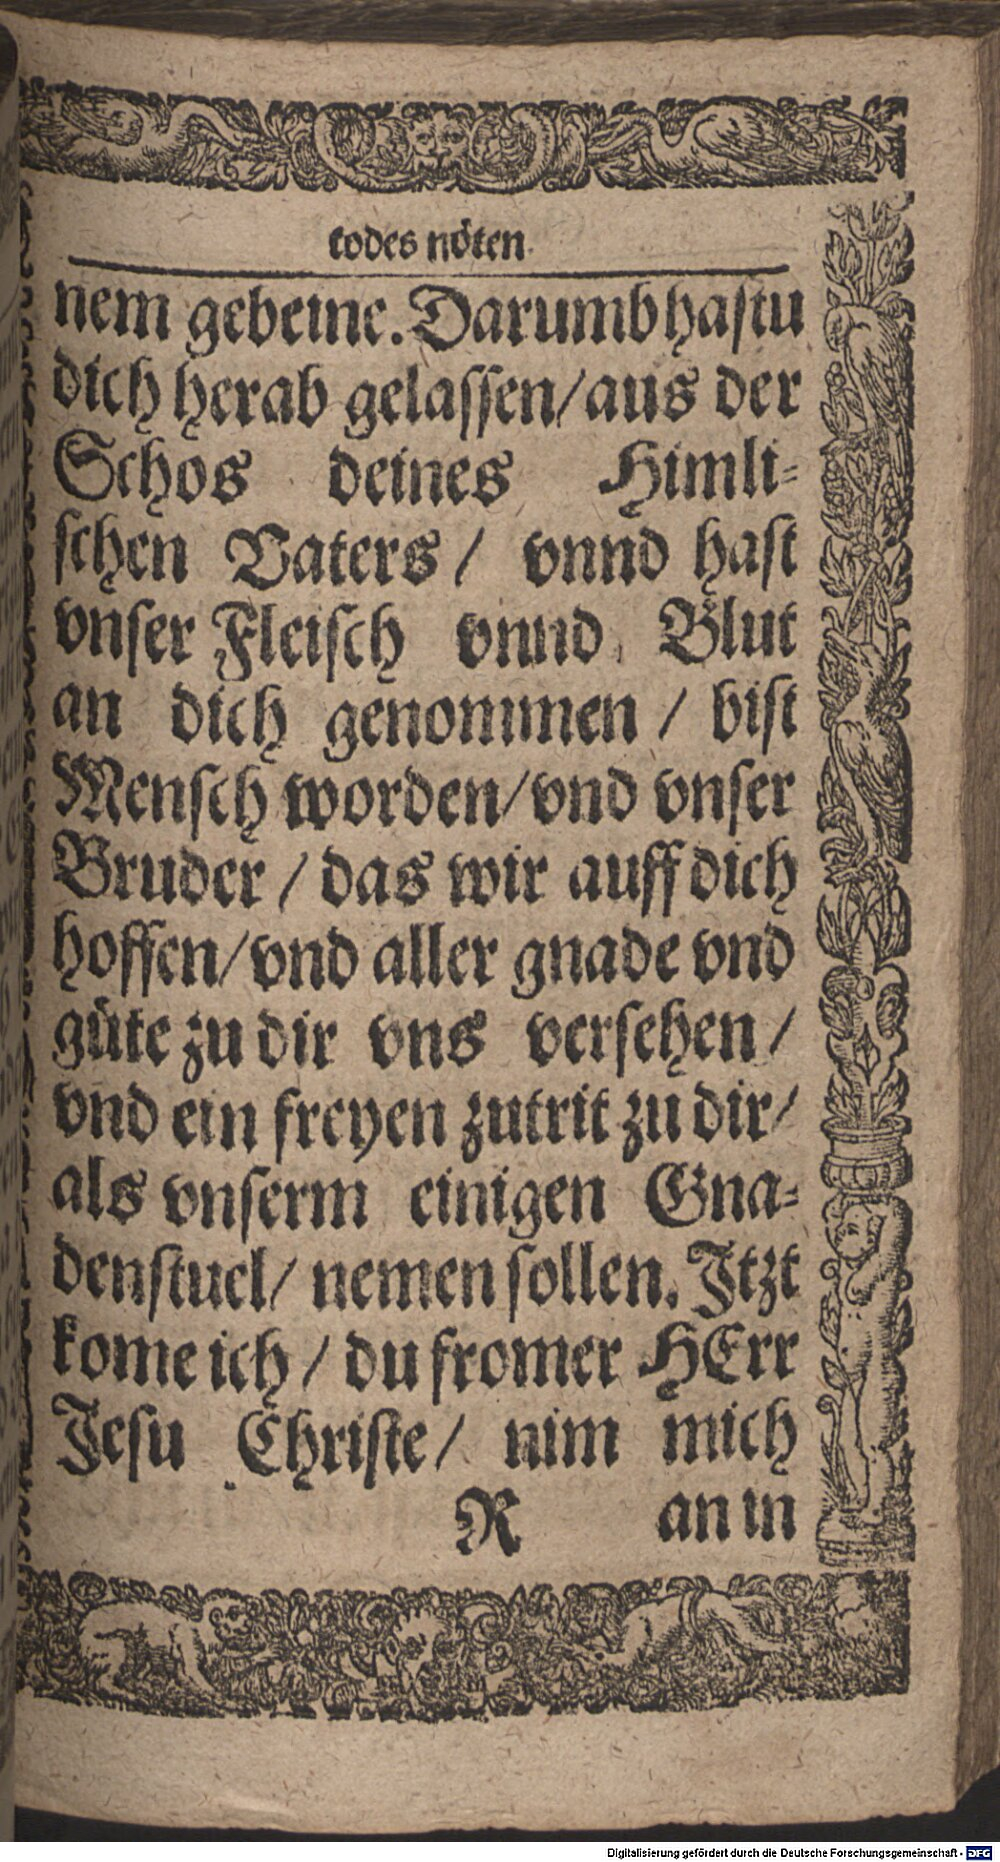 todes nöten.
nem gebeine. Darumb hastu
dich herab gelassen/ aus der
Schos deines Himli-
schen Vaters / vnnd hast
vnser Fleisch vnnd Blut
an dich genommen / bist
Mensch worden/ vnd vnser
Bruder / das wir auff dich
hoffen/ vnd aller gnade vnd
güte zu dir vns versehen /
vnd ein freyen zutrit zu dir/
als vnserm einigen Gna-
denstuel/ nemen sollen. Jtzt
kome ich / du fromer HErr
Jesu Christe/ nim mich
R an in
Digitalisierung gefördert durch die Deutsche Forschungsgemeinschaft - DFG